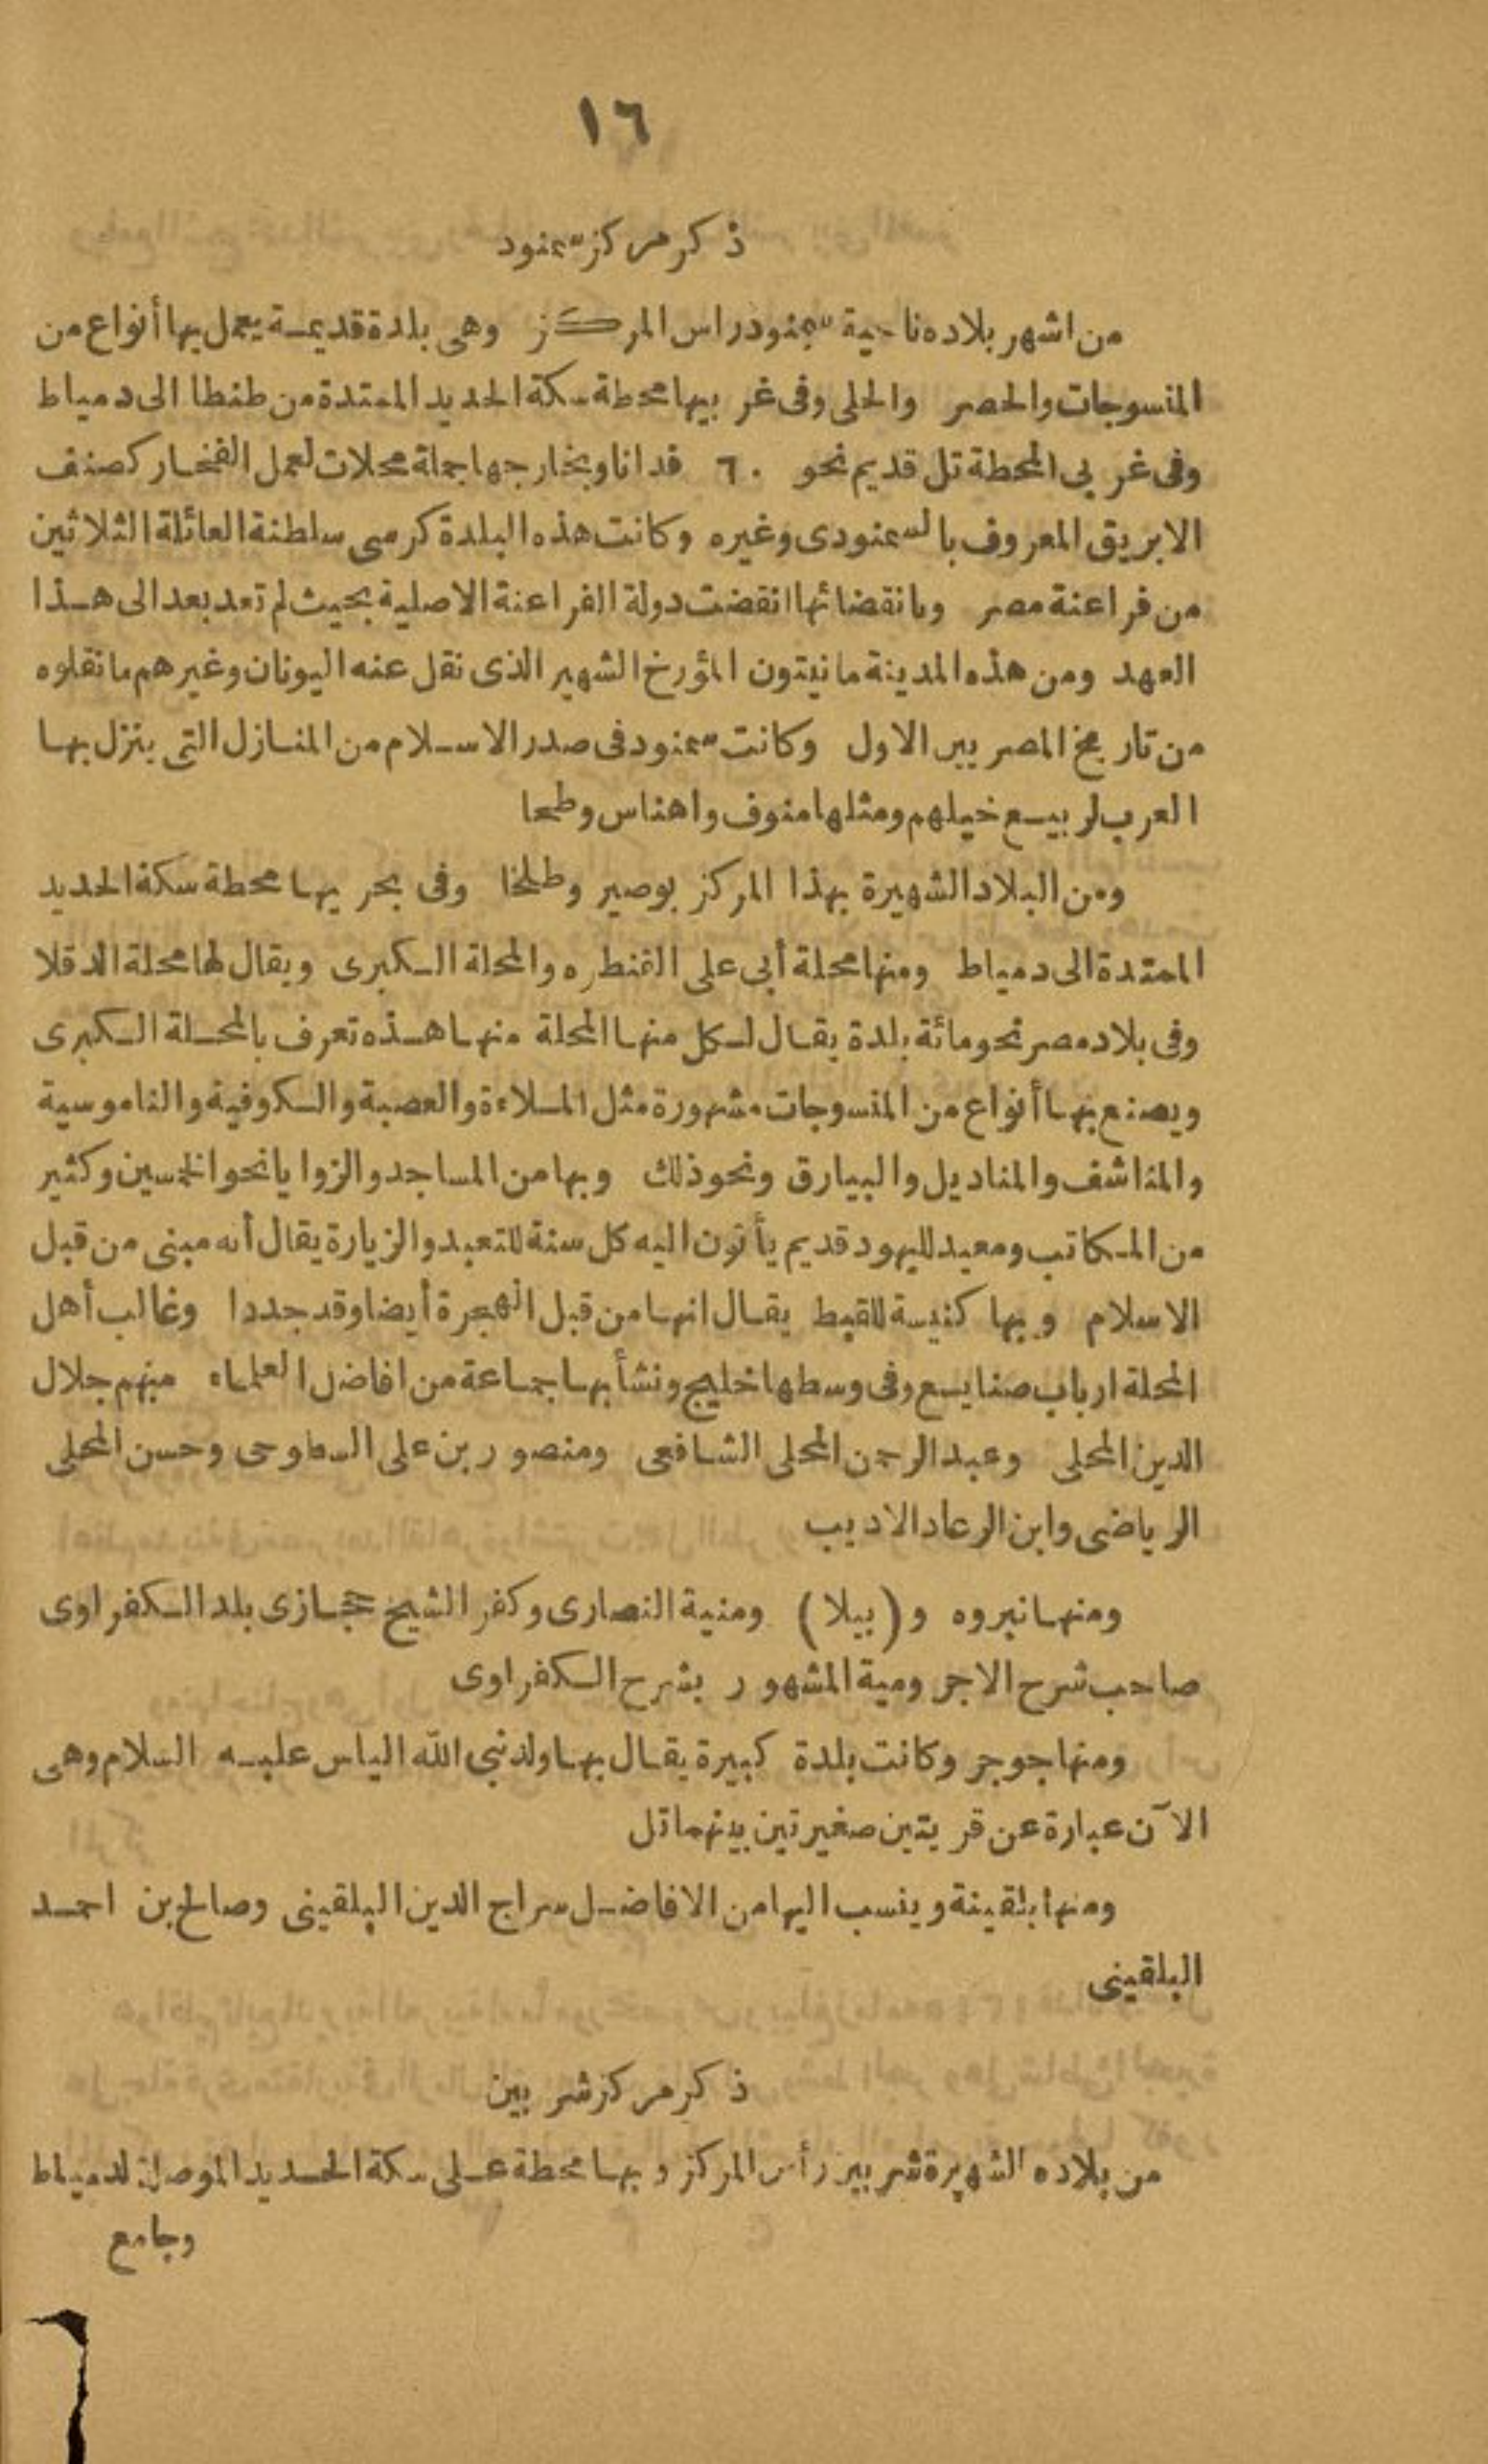 ١٦
ذكر مركز سمنود
من اشهر بلاده ناحية سمنود راس المركز وهى بلدة قديمة يعمل بها أنواع من
المنسوجات والحصر والحلى وفى غربيها محطة سكة الحديد الممتدة من طنطا الى دمياط
وفى غربى المحطة تل قديم نحو ٦٠ فدانا وبخارجها جملة محلات لعمل الفخار كصنف
الابريق المعروف بالسمنودى وغيره وكانت هذه البلدة كرسى سلطنة العائلة الثلاثين
من فراعنة مصر وبانقضائها انقضت دولة الفراعنة الاصلية بحيث لم تعد بعد الى هذا
العهد ومن هذه المدينة مانيتون المؤرخ الشهير الذى نقل عنه اليونان وغيرهم ما نقلوه
من تاريخ المصريين الاول وكانت سمنود فى صدر الاسلام من المنازل التى ينزل بها
العرب لربيع خيلهم ومثلها منوف واهناس وطحا
ومن البلاد الشهيرة بهذا المركز بوصير وطلخا وفى بحريها محطة سكة الحديد
الممتدة الى دمياط ومنها محلة أبى على القنطره والمحلة الكبرى ويقال لها محلة الدقلا
وفى بلاد مصر نحو مائة بلدة يقال لكل منها المحلة منها هذه تعرف بالمحلة الكبرى
ويصنع بها أنواع من المنسوجات مشهورة مثل الملاءة والعصبة والكوفية والناموسية
والمناشف والمناديل والبيارق ونحو ذلك وبها من المساجد والزوايا نحو الخمسين وكثير
من المكاتب ومعبد لليهود قديم يأتون اليه كل سنة للتعبد والزيارة يقال أنه مبنى من قبل
الاسلام وبها كنيسة للقبط يقال انها من قبل الهجرة أيضا وقد جددا وغالب أهل
المحلة ارباب صنايع وفى وسطها خليج ونشأ بها جماعة من افاضل العلماء منهم جلال
الدين المحلى وعبد الرحمن المحلى الشافعى ومنصور بن على السطوحى وحسن المحلى
الرياضى وابن الرعاد الاديب
ومنها نبروه و (بيلا) ومنية النصارى وكفر الشيخ حجازى بلد الكفراوى
صاحب شرح الاجرومية المشهور بشرح الكفراوى
ومنها جوجر وكانت بلدة كبيرة يقال بها ولد نبى الله الياس عليه السلام وهى
الآن عبارة عن قريتين صغيرتين بينهما تل
ومنها بلقينة وينسب اليها من الافاضل سراج الدين البلقينى وصالح بن احمد
البلقينى
ذكر مركز شربين
من بلاده الشهيرة شربين رأس المركز وبها محطة على سكة الحديد الموصلة لدمياط
وجامع